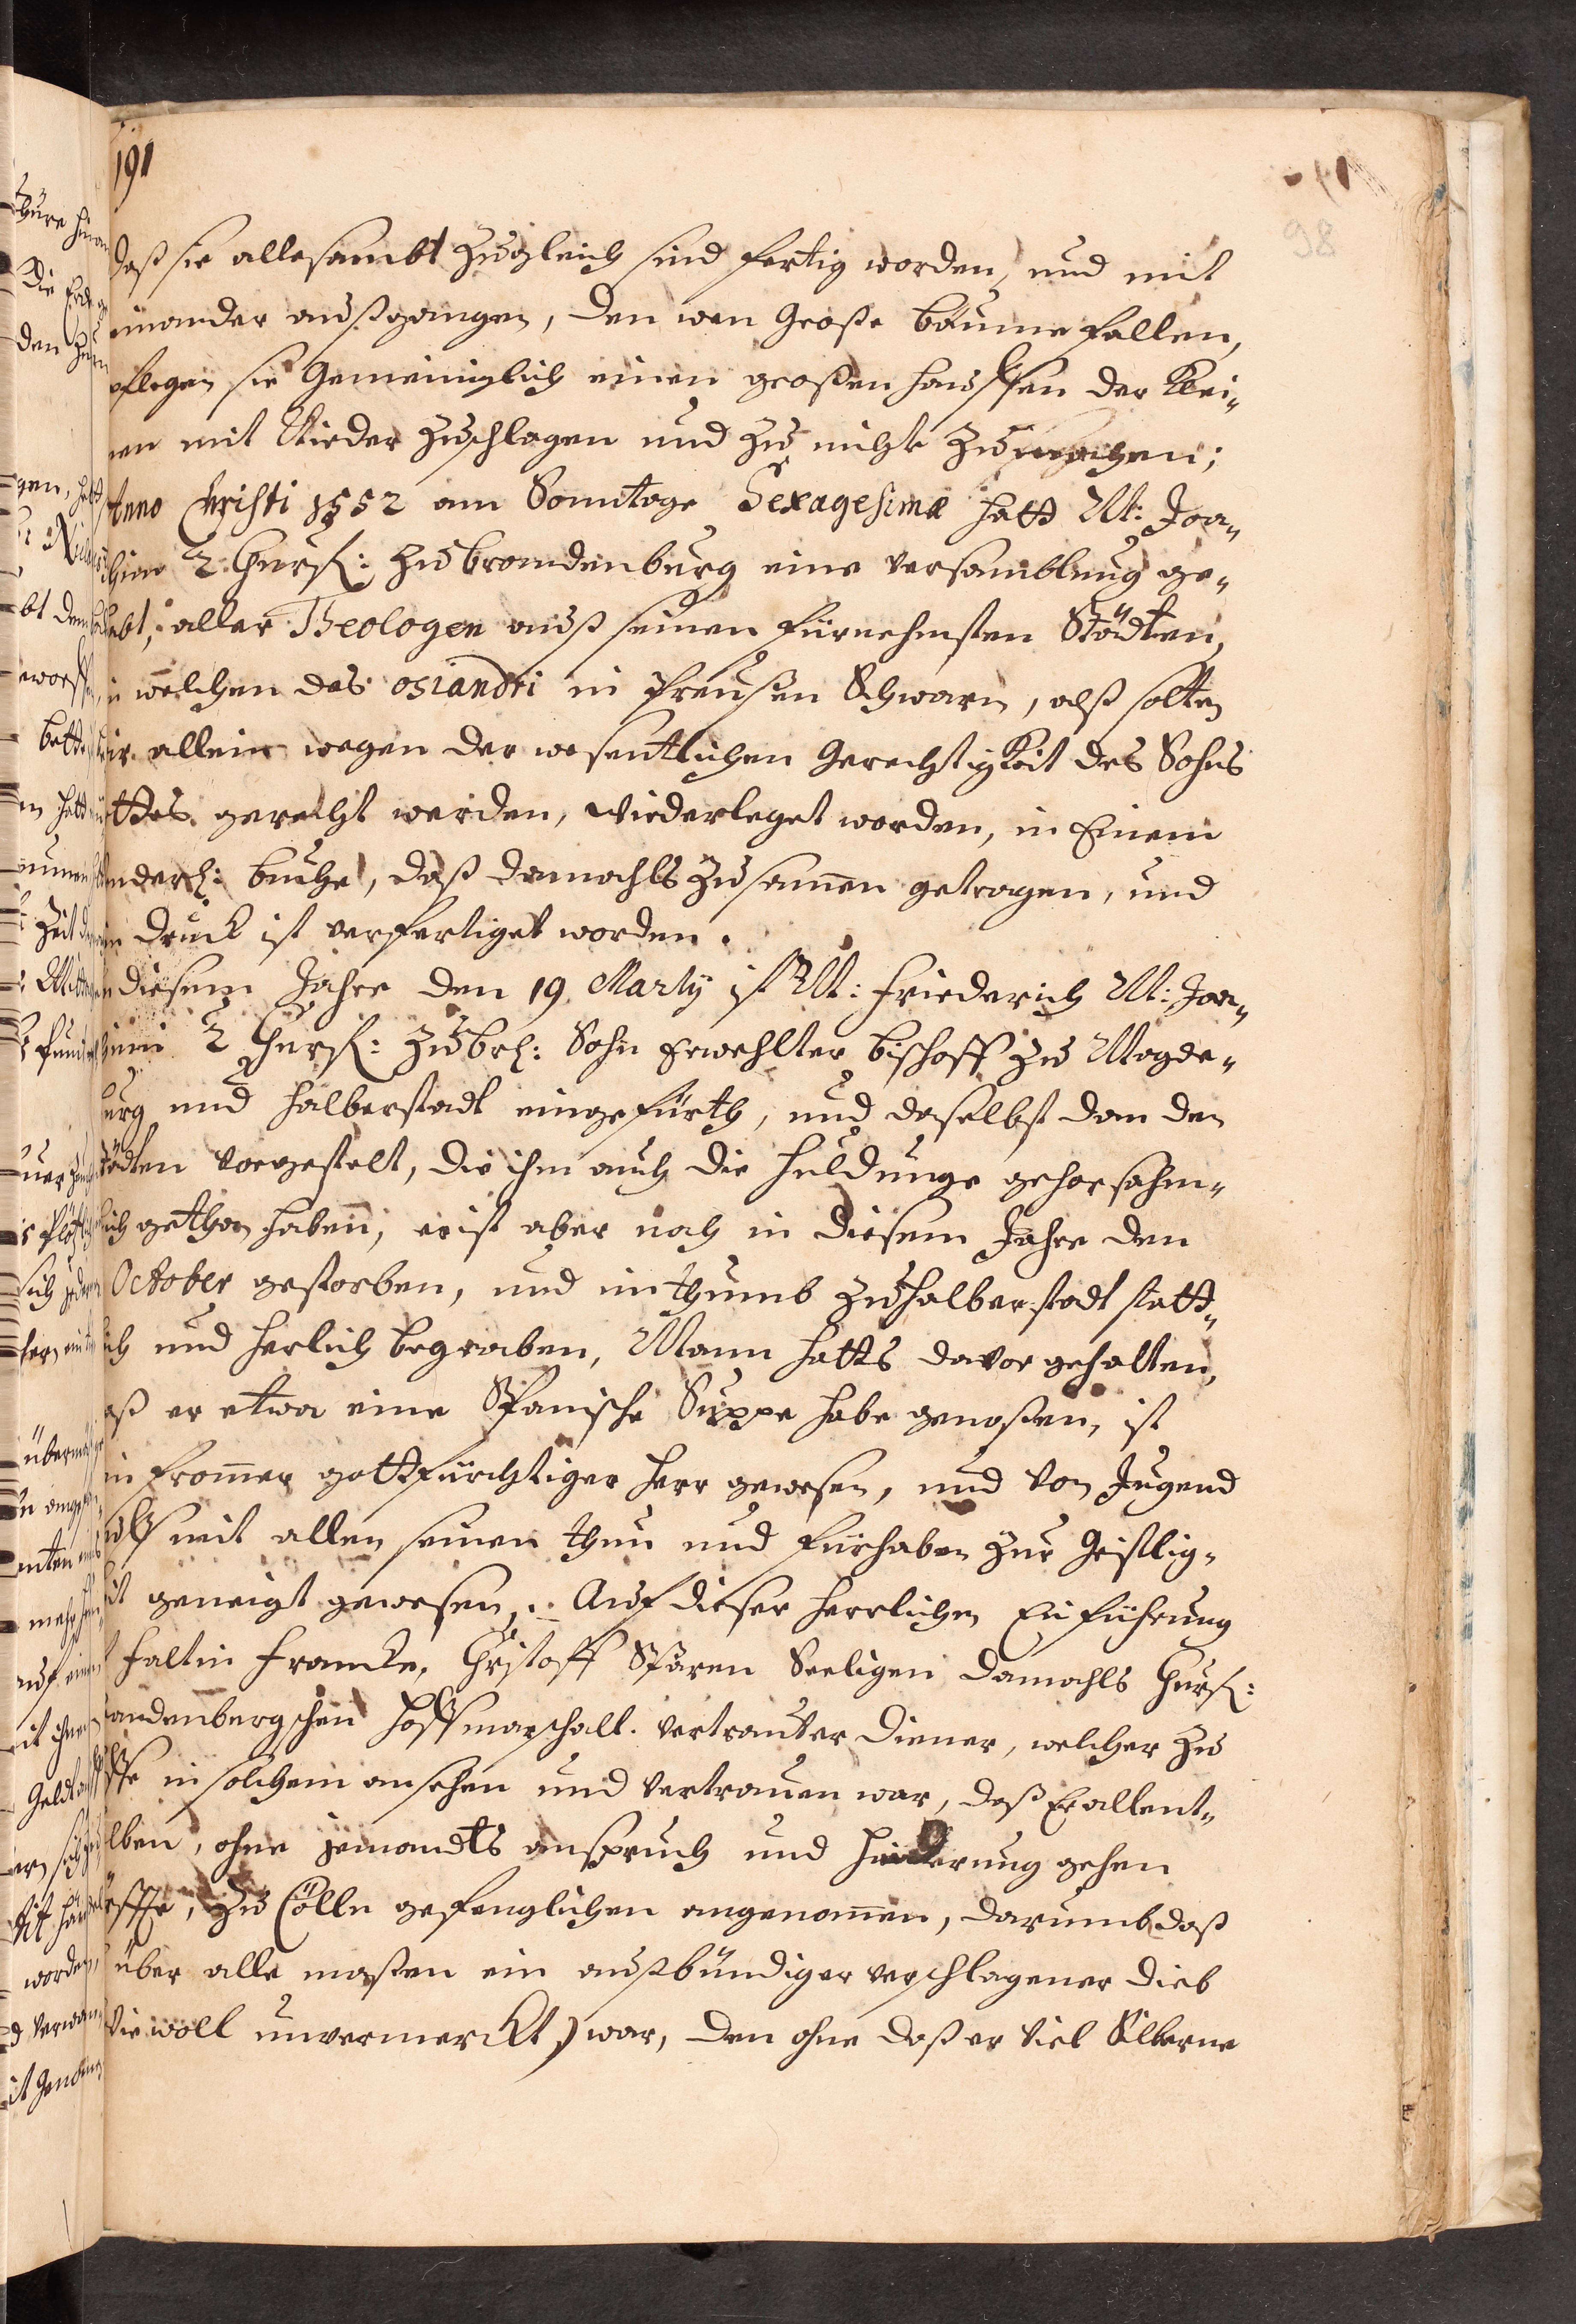 191
98
daß sie allesambt zugleich sind fertig worden, und mit
einander außgangen, den wen Große bäume fallen,
pflegen sie Gemeiniglich einen großen hauffen der klei-
nen mit Nieder zuschlagen und zu nichte zu machen;
Anno Christi 1552 am Sonntage Sexagesimæ hatt M: Joa-
chim 2 Churf: zu brandenburg eine versamblung ge-
habt, aller Theologen auß seinen fürnehmsten Städten,
in welchen des osiandri in Preußen Schwarm, alß solten
wir allein wegen der wesentlichen Gerechtigkeit des Sohns
ttes gerecht werden, wiederleget worden, in Einem
nderl: buche, daß damahls zusamen getragen, und
in druck ist verfertiget worden.
diesem Jahre den 19 Martij ist M: Friederich M: Joa-
chimi 2 Churf: zu br: Sohn Erwehlter bischoff zu Magde-
burg und halberstadt eingeführt, und daselbst dan den
Städten vorgestelt, die ihm auch die huldunge gehorsahm-
lich gethan haben, er ist aber noch in diesem Jahre den
October gestorben, und im thumb zu halberstadt statt-
lich und herlich begraben, Mann hatts davor gehalten,
daß er etwa eine Spanische Suppe habe genoßen, ist
ein fromer gottfürchtiger herr gewesen, und von Jugend
auff mit allen seinen thun und fürhaben zur Geistlig-
keit geneigt gewesen. Auf dieser herrlichen Einführung
faltin francke, Christoff Sparen Seeligen damahls Churf:
andenbergschen hoffmarschall vertrauter diener, welcher zu
ffe in solchem ansehen und vertrauen war, daß Er allent-
lben, ohne jemandts anspruch und hinderung gehen
, zu Cölln gefenglichen angenomen, darumb daß
über alle maßen ein außbündiger verschlagener dieb
wie woll unvermerckt) war, den ohne daß er viel Silberne